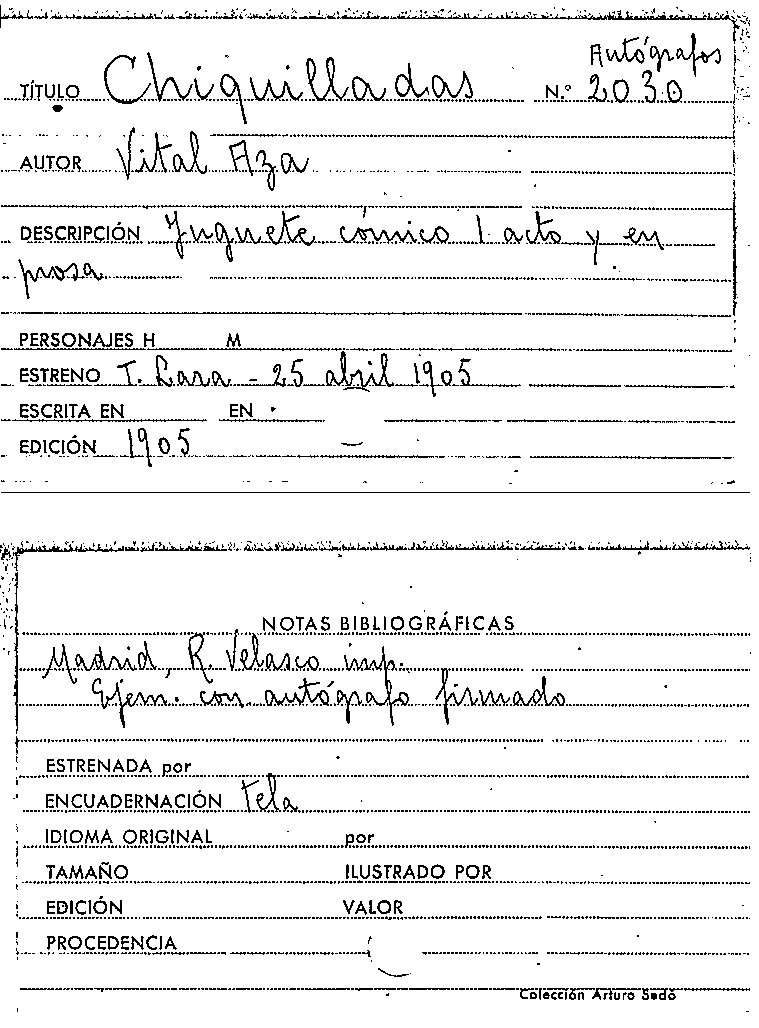 Autógrafos
TÍTULO Chiquilladas N.º 2030
AUTOR Vital Aza
DESCRIPCIÓN Juguete cómico 1 acto y en
prosa
PERSONAJES H M
ESTRENO T. Lara - 25 abril 1905
ESCRITA EN EN
EDICIÓN 1905 —
NOTAS BIBLIOGRÁFICAS
Madrid, R. Velasco imp.
Ejem. con autógrafo firmado
ESTRENADA por
ENCUADERNACIÓN tela
IDIOMA ORIGINAL por
TAMAÑO ILUSTRADO POR
EDICIÓN VALOR
PROCEDENCIA
Colección Arturo Sedó